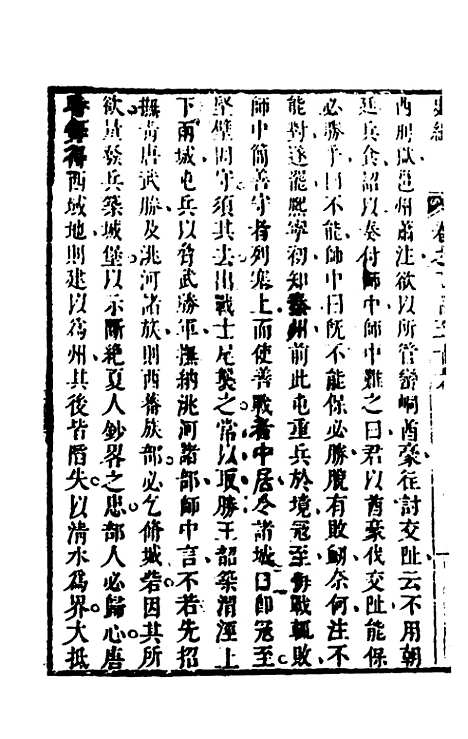 西刑獄邕州蕭注欲以所管蠻峒酋豪往討交趾云不用朝
廷兵食詔以奏付師中師中難之曰君以酋豪伐交趾能保
必勝乎曰不能師中曰旣不能保必勝脫有敗衂奈何注不
能對遂罷熙寧初知秦州前此屯重兵於境冦至每戰輒敗
師中簡善守者列塞上而使善戰者中居令諸城曰卽冦至
堅壁固守須其去出戰士尾襲之常以取勝王韶築渭涇上
下兩城屯兵以脅武勝軍撫納洮河諸部師中言不若先招
撫青唐武勝及洮河諸族則西蕃族部必乞脩城砦因其所
欲量發兵築城堡以示斷絶夏人鈔畧之患部人必歸心唐
西域地則建以爲州其後皆陷失以清水爲界大抵